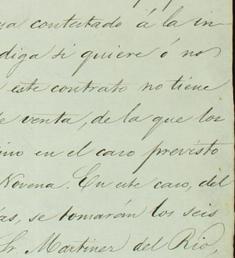 ya contestado á la in-
diga si quiere ó no
este contrato no tiene
e venta, de la que los
ino en el caso previsto
Novena. En este caso, del
ías, se tomarán los seis
Sr. Martinez del Rio,